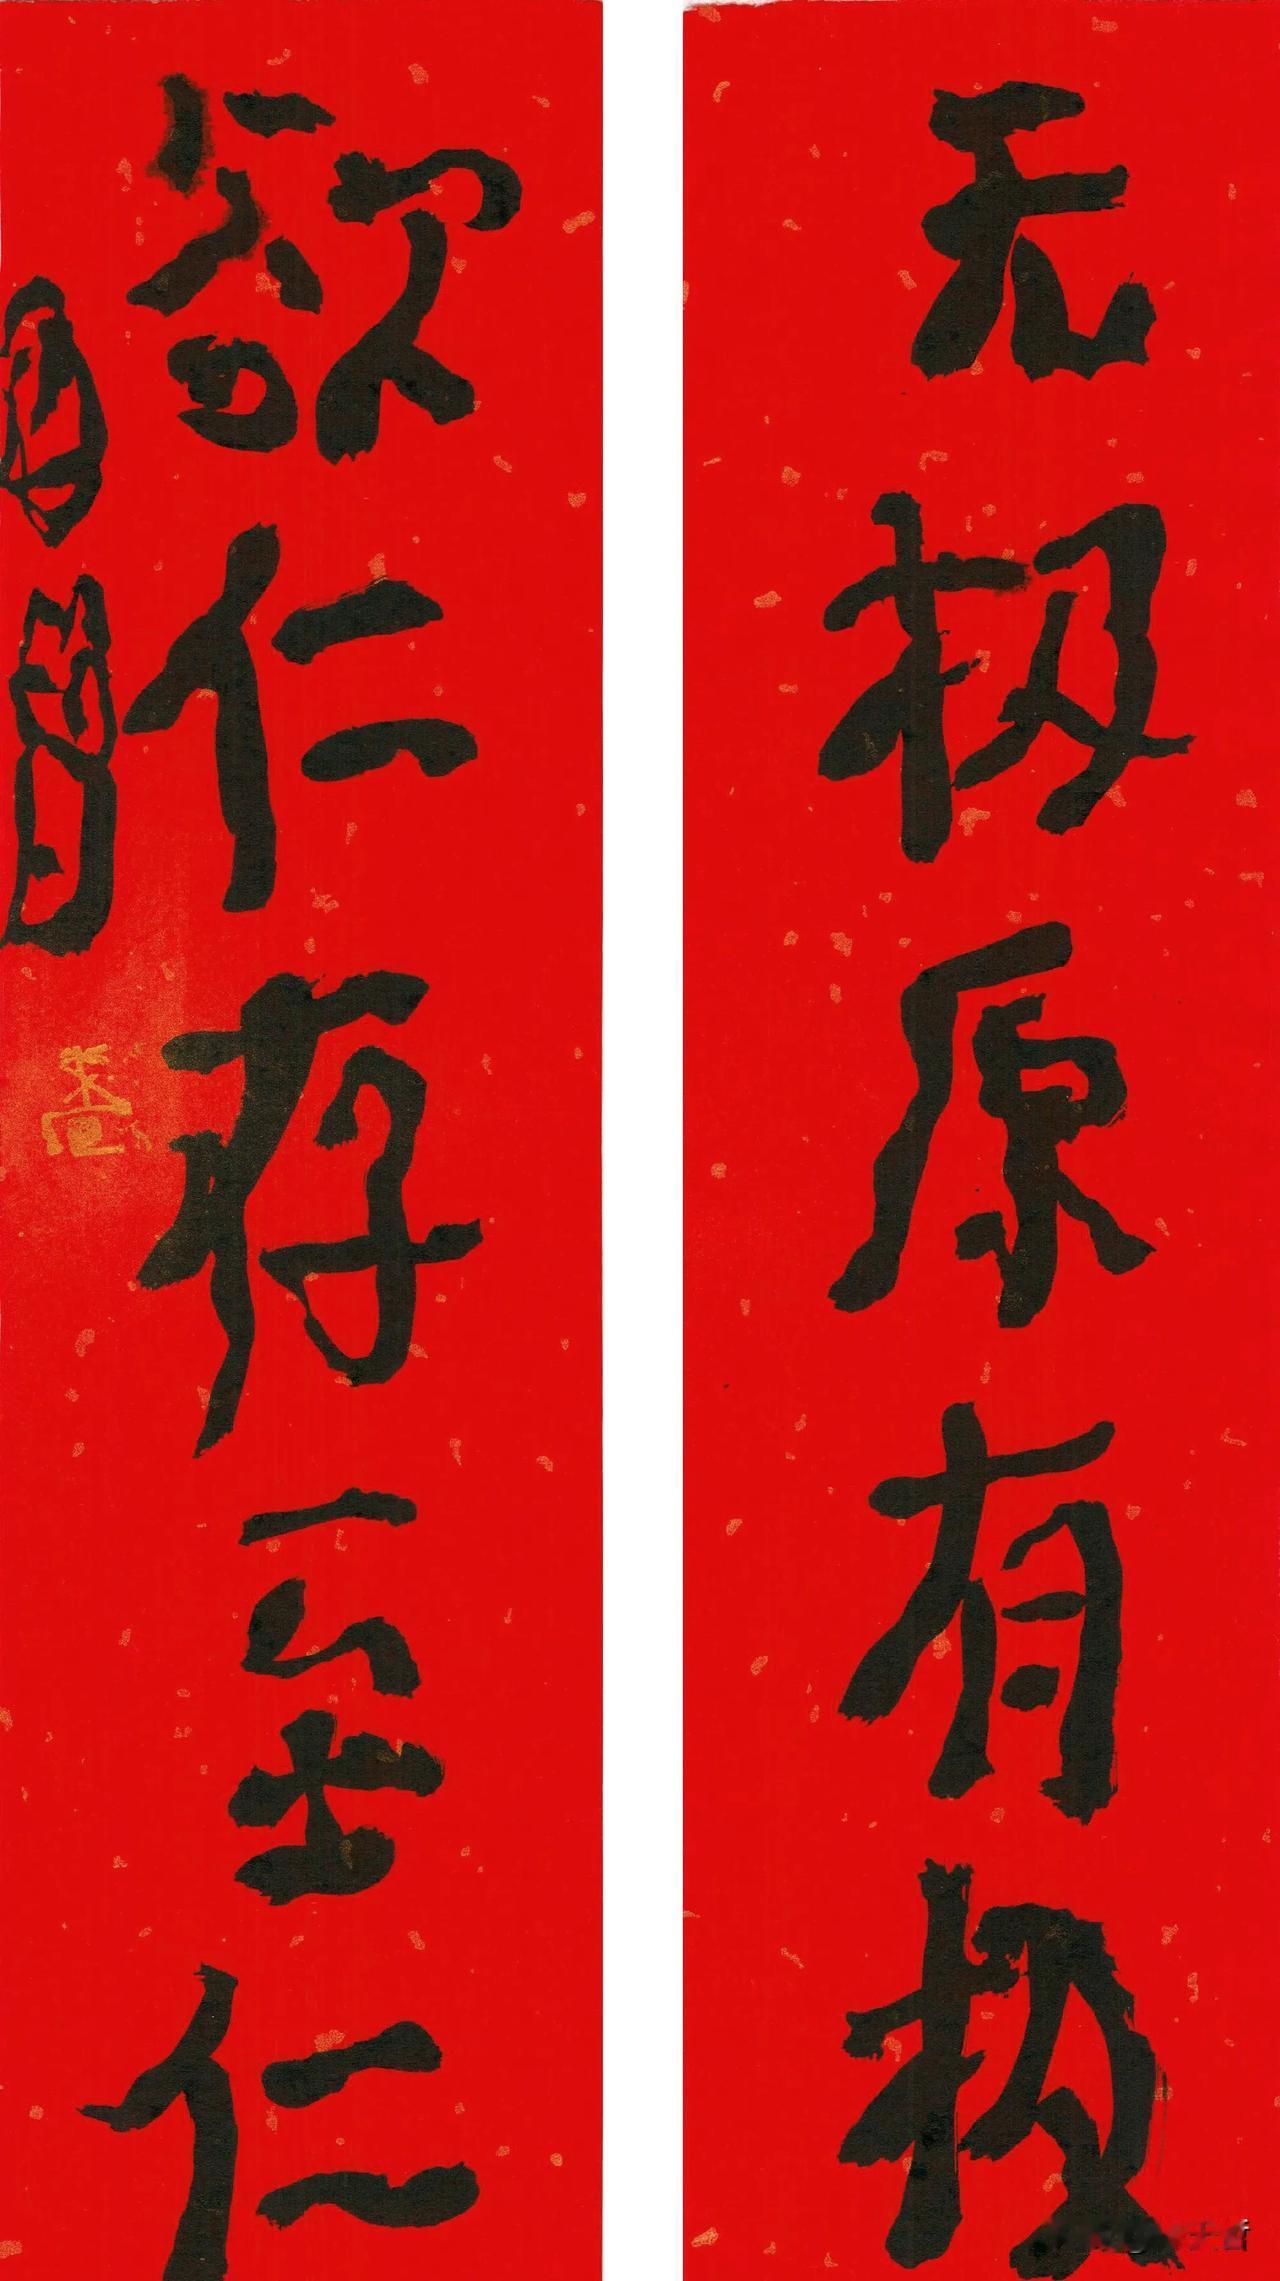 无极原有极
欲仁存至仁